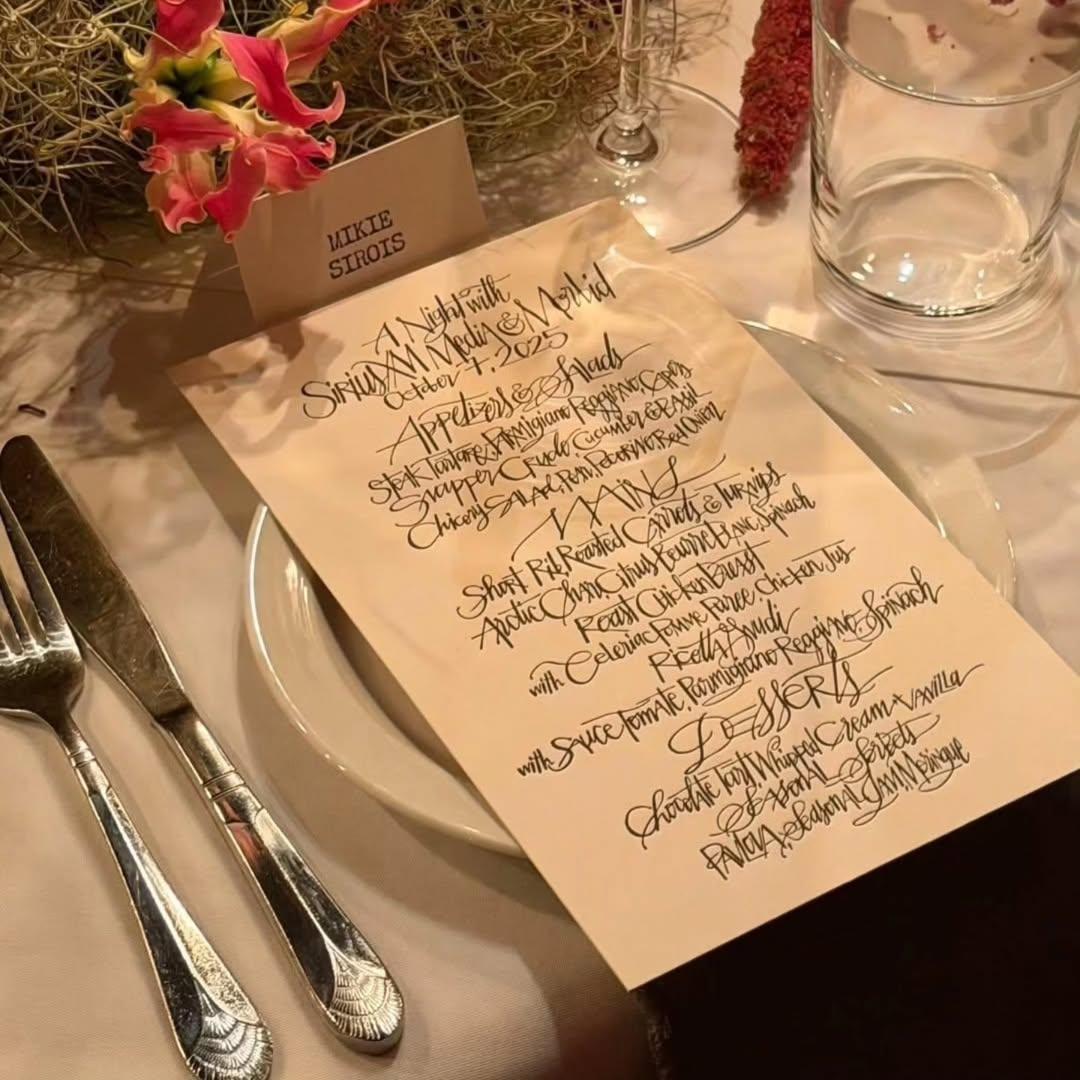 MIKIE
SIROIS
A Night with
SiriusXM Media & Morbid
October 7, 2025
Appetizers & Salads
Steak Tartare, Parmigiano Reggiano, Capers
Snapper Crudo Cucumber & Basil
Chicory Salad, Pear, Pecorino, Red Onion
MAINS
Short Rib, Roasted Carrots & Turnips
Arctic Char Citrus Beurre Blanc, Spinach
Roast Chicken Breast
with Celeriac Pomme Puree Chicken Jus
Ricotta Gnudi
with Sauce Tomate, Parmigiano Reggiano, Spinach
DESSERTS
Chocolate Tart Whipped Cream Vanilla
SEASONAL Sorbets
PAVLOVA, Seasonal Jam, Meringue